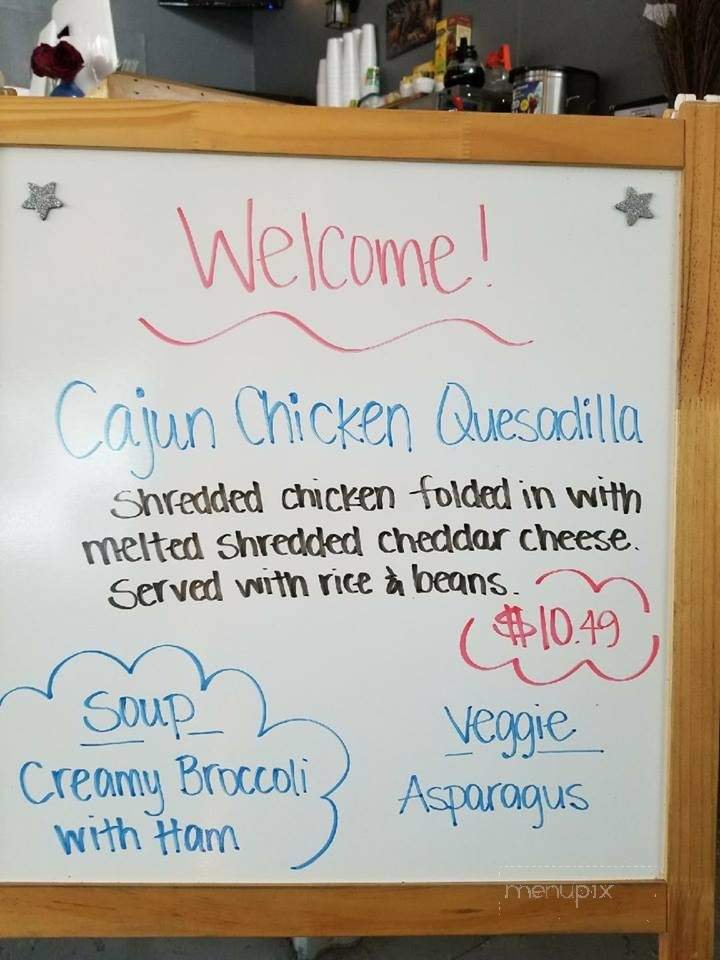 Welcome!
Cajun Chicken Quesadilla
Shredded chicken folded in with
melted shredded cheddar cheese.
Served with rice & beans.
$10.49
Soup
Creamy Broccoli
with Ham
Veggie
Asparagus
menupix